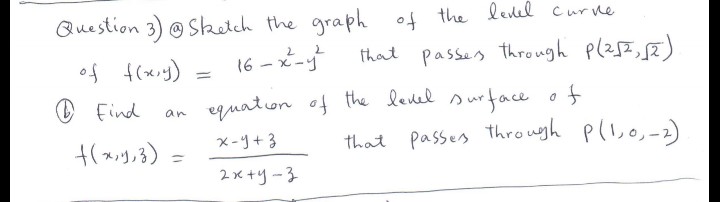 Question 3) ⓐ Sketch the graph of the level curve
of f(x,y) = 16 - x² - y² that passes through P(2√2, √2)
ⓑ Find an equation of the level surface of
f(x,y,z) = (x-y+z)/(2x+y-z) that passes through P(1,0,-2)